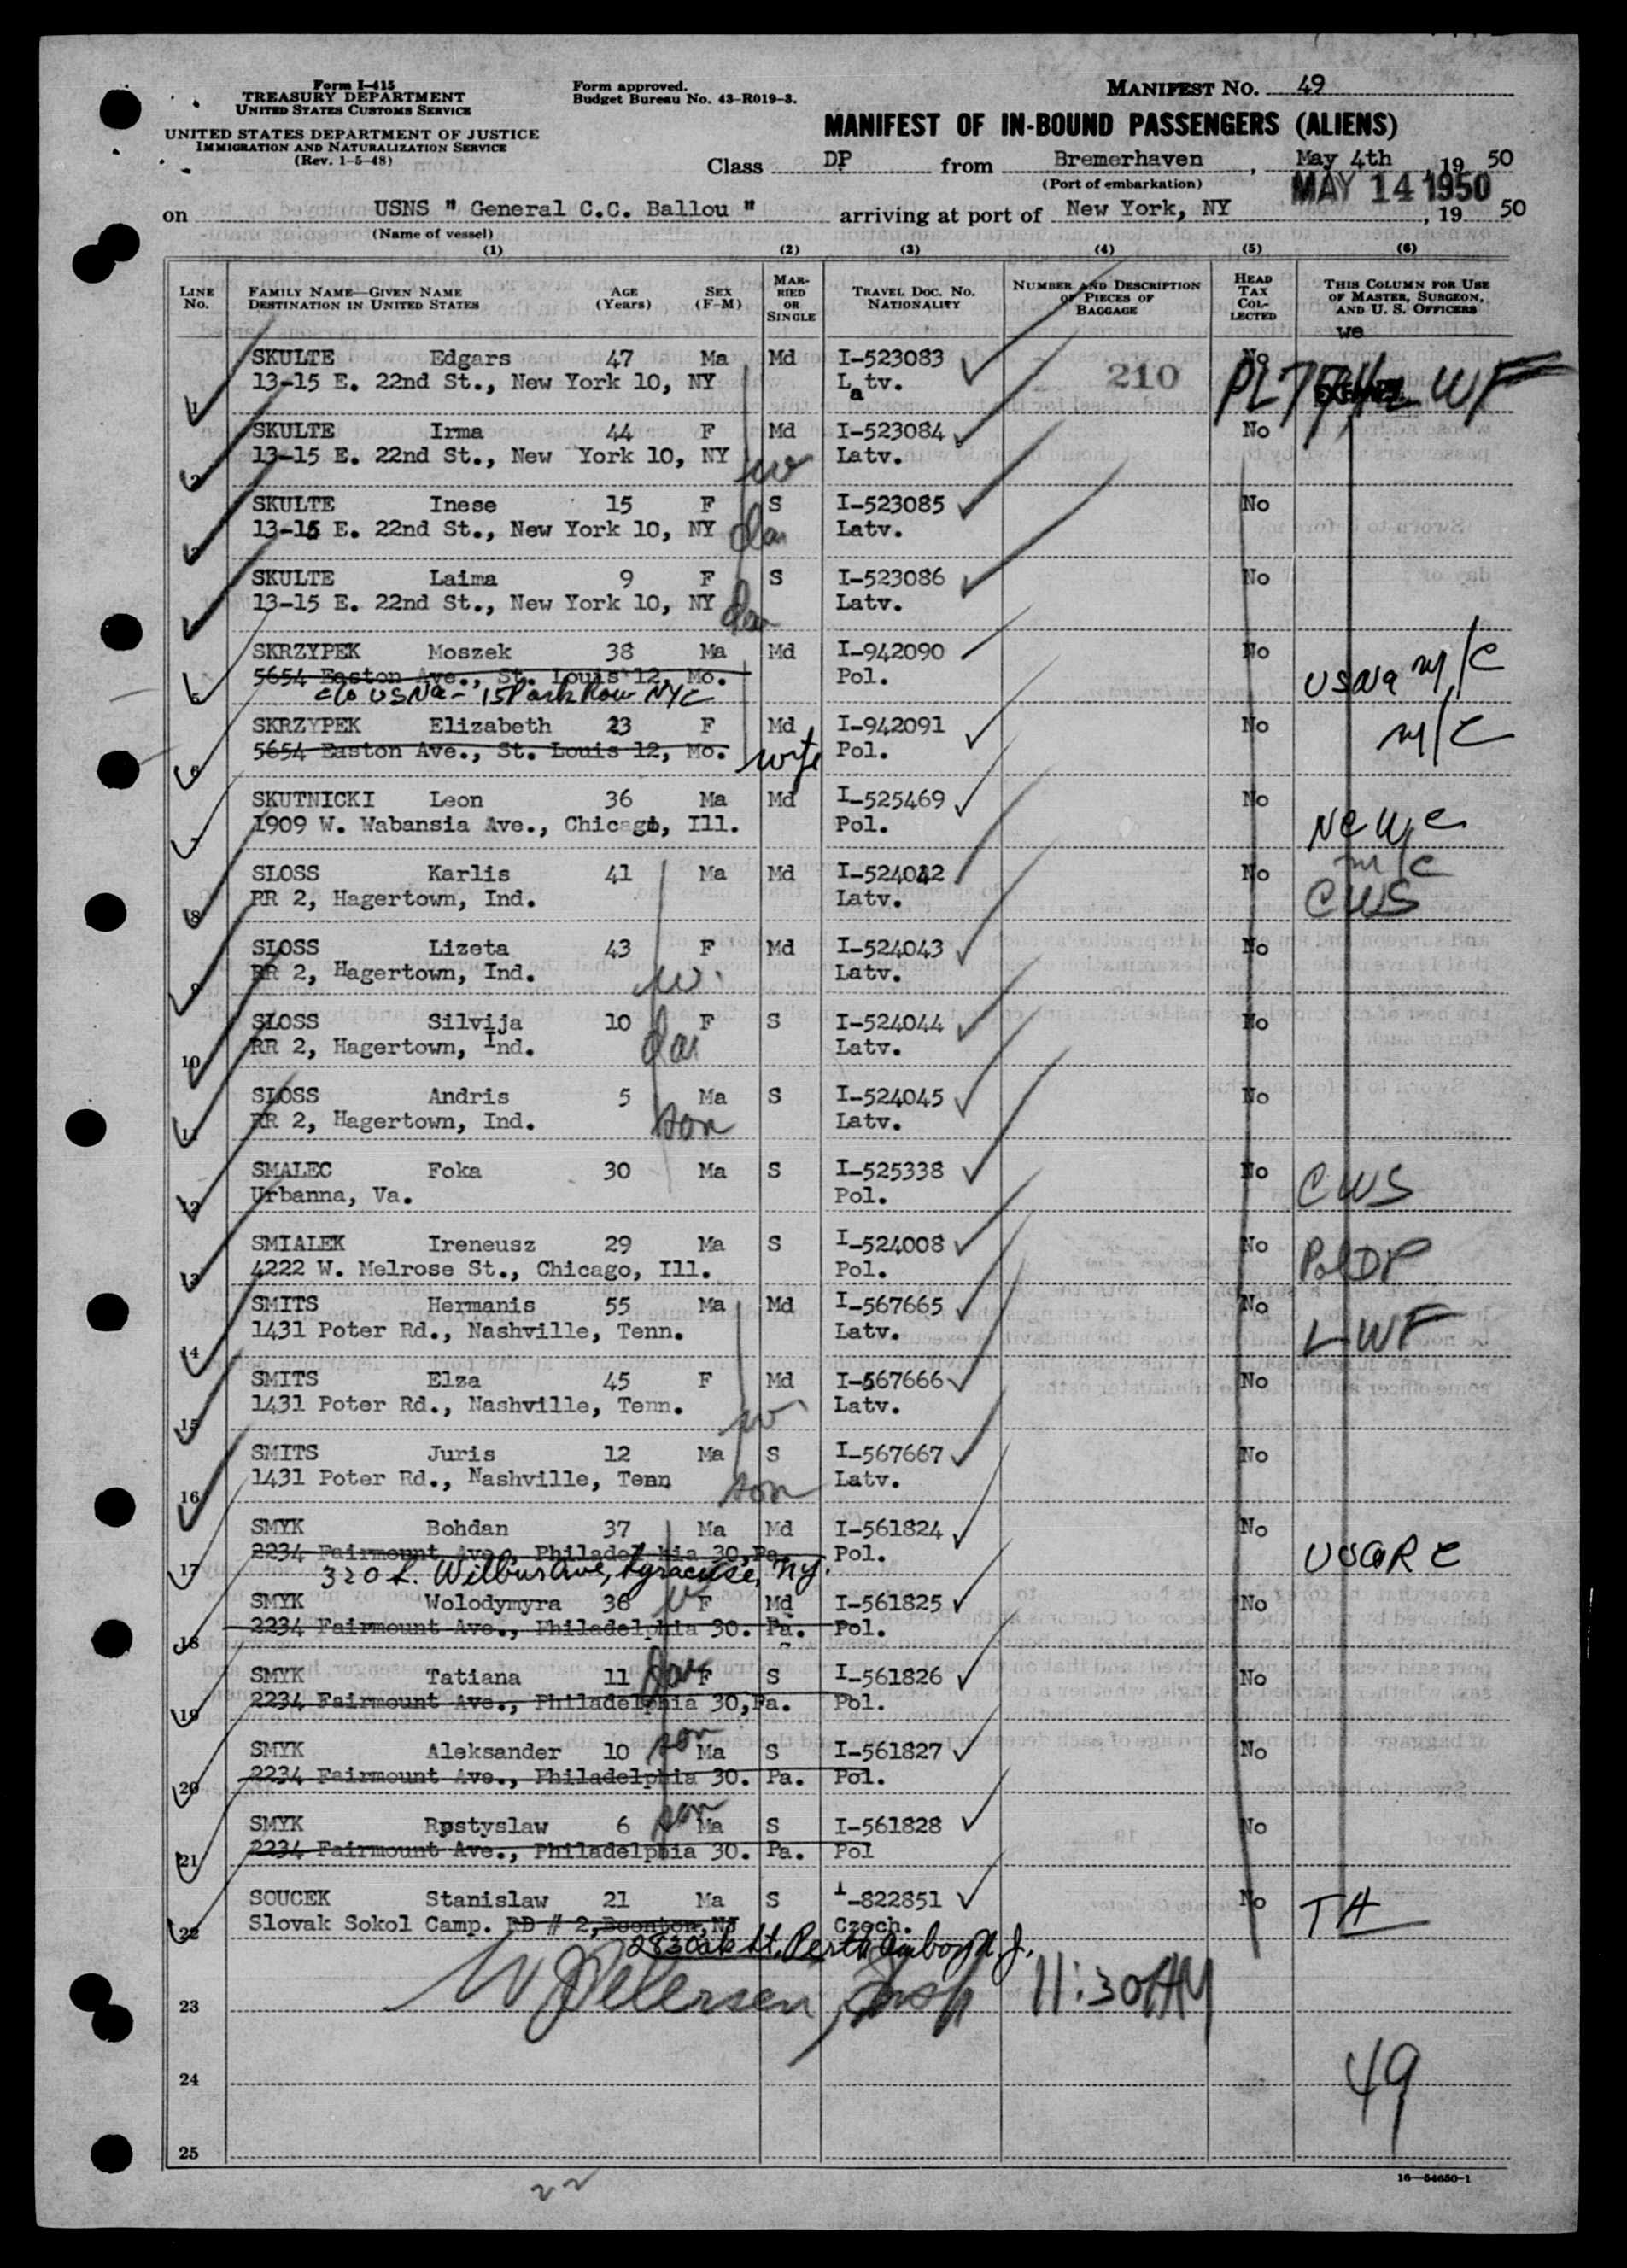 Form I-415
TREASURY DEPARTMENT
UNITED STATES CUSTOMS SERVICE
UNITED STATES DEPARTMENT OF JUSTICE
IMMIGRATION AND NATURALIZATION SERVICE
(Rev. 1-5-48)
Form approved.
Budget Bureau No. 43-R019-3.
MANIFEST NO. 49
MANIFEST OF IN-BOUND PASSENGERS (ALIENS)
Class DP from Bremerhaven, May 4th, 19 50
(Port of embarkation)
MAY 14 1950
on USNS " General C.C. Ballou " arriving at port of New York, NY, 19 50
(Name of vessel)
(1) (2) (3) (4) (5) (6)
LINE No. FAMILY NAME—GIVEN NAME DESTINATION IN UNITED STATES AGE (Years) SEX (F-M) MARRIED OR SINGLE TRAVEL DOC. NO. NATIONALITY NUMBER AND DESCRIPTION OF PIECES OF BAGGAGE HEAD TAX COLLECTED THIS COLUMN FOR USE OF MASTER, SURGEON, AND U. S. OFFICERS
we
1 SKULTE Edgars 47 Ma Md I-523083 210 No
13-15 E. 22nd St., New York 10, NY Latv. LWF
2 SKULTE Irma 44 F Md I-523084 No
13-15 E. 22nd St., New York 10, NY w Latv.
3 SKULTE Inese 15 F S I-523085 No
13-15 E. 22nd St., New York 10, NY dau Latv.
4 SKULTE Laima 9 F S I-523086 No
13-15 E. 22nd St., New York 10, NY dau Latv.
5 SKRZYPEK Moszek 38 Ma Md I-942090 No USNA m/c
5654 Easton Ave., St. Louis 12, Mo. Pol.
c/o USNA - 15 Park Row NYC
6 SKRZYPEK Elizabeth 23 F Md I-942091 No m/c
5654 Easton Ave., St. Louis 12, Mo. wife Pol.
7 SKUTNICKI Leon 36 Ma Md I-525469 No
1909 W. Wabansia Ave., Chicago, Ill. Pol. NCWC
m/c
8 SLOSS Karlis 41 Ma Md I-524042 No
RR 2, Hagertown, Ind. Latv. CWS
9 SLOSS Lizeta 43 F Md I-524043 No
RR 2, Hagertown, Ind. w. Latv.
10 SLOSS Silvija 10 F S I-524044 No
RR 2, Hagertown, Ind. dau Latv.
11 SLOSS Andris 5 Ma S I-524045 No
RR 2, Hagertown, Ind. son Latv.
12 SMALEC Foka 30 Ma S I-525338 No CWS
Urbanna, Va. Pol.
13 SMIALEK Ireneusz 29 Ma S I-524008 No PolDP
4222 W. Melrose St., Chicago, Ill. Pol.
14 SMITS Hermanis 55 Ma Md I-567665 No
1431 Poter Rd., Nashville, Tenn. Latv. LWF
15 SMITS Elza 45 F Md I-567666 No
1431 Poter Rd., Nashville, Tenn. w Latv.
16 SMITS Juris 12 Ma S I-567667 No
1431 Poter Rd., Nashville, Tenn son Latv.
17 SMYK Bohdan 37 Ma Md I-561824 No
2234 Fairmount Ave., Philadelphia 30, Pa. Pol.
Wilbur Ave, Syracuse, NY.
18 SMYK Wolodymyra 36 w F Md I-561825 No
2234 Fairmount Ave., Philadelphia 30. Pa. Pol.
19 SMYK Tatiana 11 dau F S I-561826 No
2234 Fairmount Ave., Philadelphia 30, Pa. Pol.
20 SMYK Aleksander 10 son Ma S I-561827 No
2234 Fairmount Ave., Philadelphia 30. Pa. Pol.
21 SMYK Rostyslaw 6 son Ma S I-561828 No
2234 Fairmount Ave., Philadelphia 30. Pa. Pol
22 SOUCEK Stanislaw 21 Ma S I-822851 No
Slovak Sokol Camp. RD # 2, Boonton, NJ Czech. TH
283 Oak St. Perth Amboy N.J.
23 Petersen, Insp 11:30AM
24 49
25
16-54650-1
22